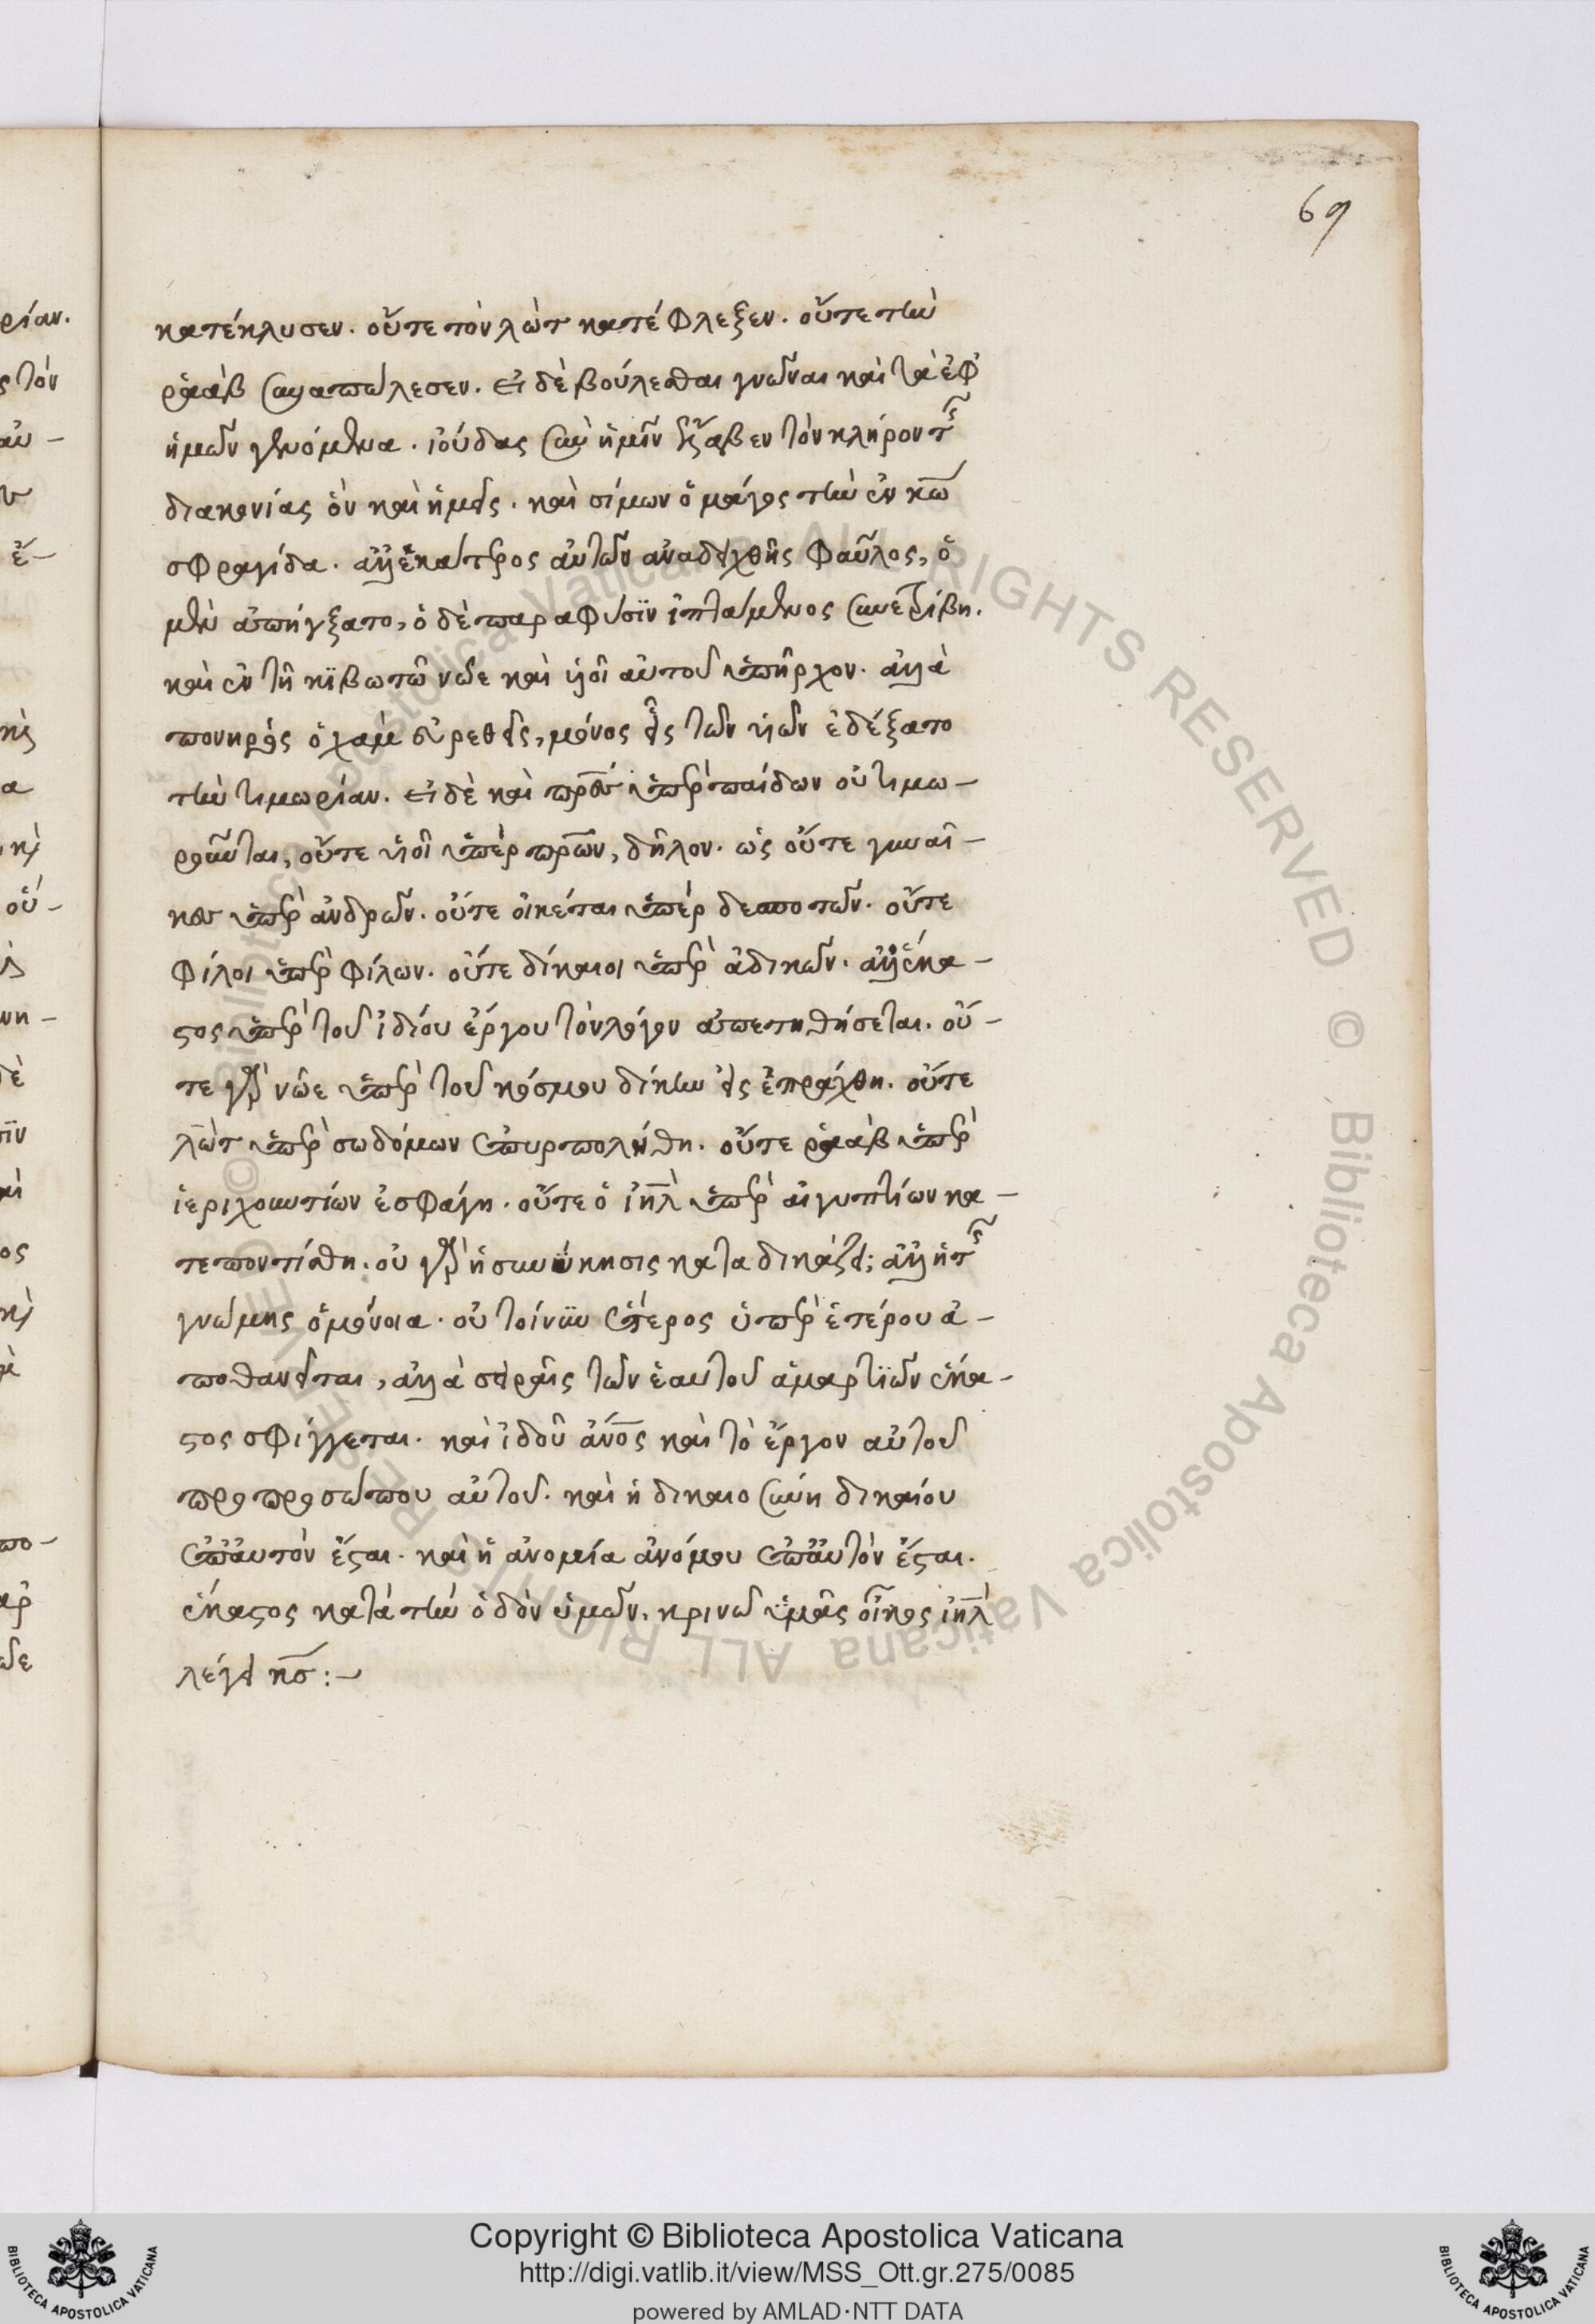 69
κατέκλυσεν. οὔτε τὸν λὼτ κατέφλεξεν. οὔτε τὴν
ῥαὰβ συναπώλεσεν. εἰ δὲ βούλεσθαι γνῶναι καὶ τὰ ἐφ
ἡμῶν γενόμενα. ἰούδας σὺν ἡμῖν ἔλαβεν τὸν κλῆρον τῆς
διακονίας ὃν καὶ ἡμεῖς. καὶ σίμων ὁ μάγος τὴν ἐν κῶ
σφραγίδα. ἀλλ' ἑκάτερος αὐτῶν ἀναδειχθεὶς φαῦλος, ὁ
μὲν ἀπήγξατο, ὁ δὲ παραφύσϊν ἱπτάμενος συνετρίβη.
καὶ ἐν τῇ κϊβωτῶ νῶε καὶ υἱοὶ αὐτοῦ ὑπῆρχον. ἀλλὰ
πονηρὸς ὁ χαμ εὑρεθεὶς, μόνος εἷς τῶν υἱῶν ἐδέξατο
τὴν τιμωρίαν. εἰ δὲ καὶ πρες ὑπὲρ παίδων οὐ τιμω-
ροῦνται, οὔτε υἱοὶ ὑπὲρ πρων, δῆλον. ὡς οὔτε γυναῖ-
κες ὑπὲρ ἀνδρῶν. οὔτε οἰκέται ὑπὲρ δεσποτῶν. οὔτε
φίλοι ὑπὲρ φίλων. οὔτε δίκαιοι ὑπὲρ ἀδίκων. ἀλλ' ἕκα-
στος ὑπὲρ τοῦ ἰδίου ἔργου τὸν λόγον ἀπετηθήσεται. οὔ-
τε γὰρ νῶε ὑπὲρ τοῦ κόσμου δίκην εἰς ἐπράχθη. οὔτε
λὼτ ὑπὲρ σωδόμων ἐπυρπολήθη. οὔτε ῥαὰβ ὑπὲρ
ἱεριχουντίων ἐσφάγη. οὔτε ὁ ἰηλ ὑπὲρ αἰγυπτίων κα-
τεποντίσθη. οὐ γὰρ ἡ συνοίκησις καταδικάζει; ἀλλ' ἡ τῆς
γνώμης ὁμόνοια. οὐ τοίνϋν ἕτερος ὑπὲρ ἑτέρου ἀ-
ποθανεῖται, ἀλλὰ σειραῖς τῶν ἑαυτοῦ ἁμαρτϊῶν ἕκα-
στος σφίγγεται. καὶ ἰδοῦ ἀνος καὶ τὸ ἔργον αὐτοῦ
προ προσώπου αὐτοῦ. καὶ ἡ δικαιοσύνη δικαίου
ἐπ' αὐτὸν ἔσται. καὶ ἡ ἀνομία ἀνόμου ἐπ' αὐτὸν ἔσται.
ἕκαστος κατὰ τὴν ὁδὸν ὑμῶν. κρινῶ ὑμᾶς οἶκος ἰηλ
λέγει κς :-
Copyright © Biblioteca Apostolica Vaticana
http://digi.vatlib.it/view/MSS_Ott.gr.275/0085
powered by AMLAD·NTT DATA